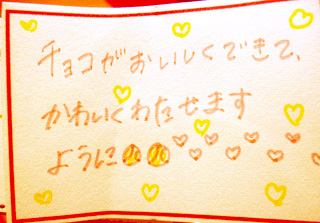 チョコがおいしくできて、
かわいくわたせます
ように